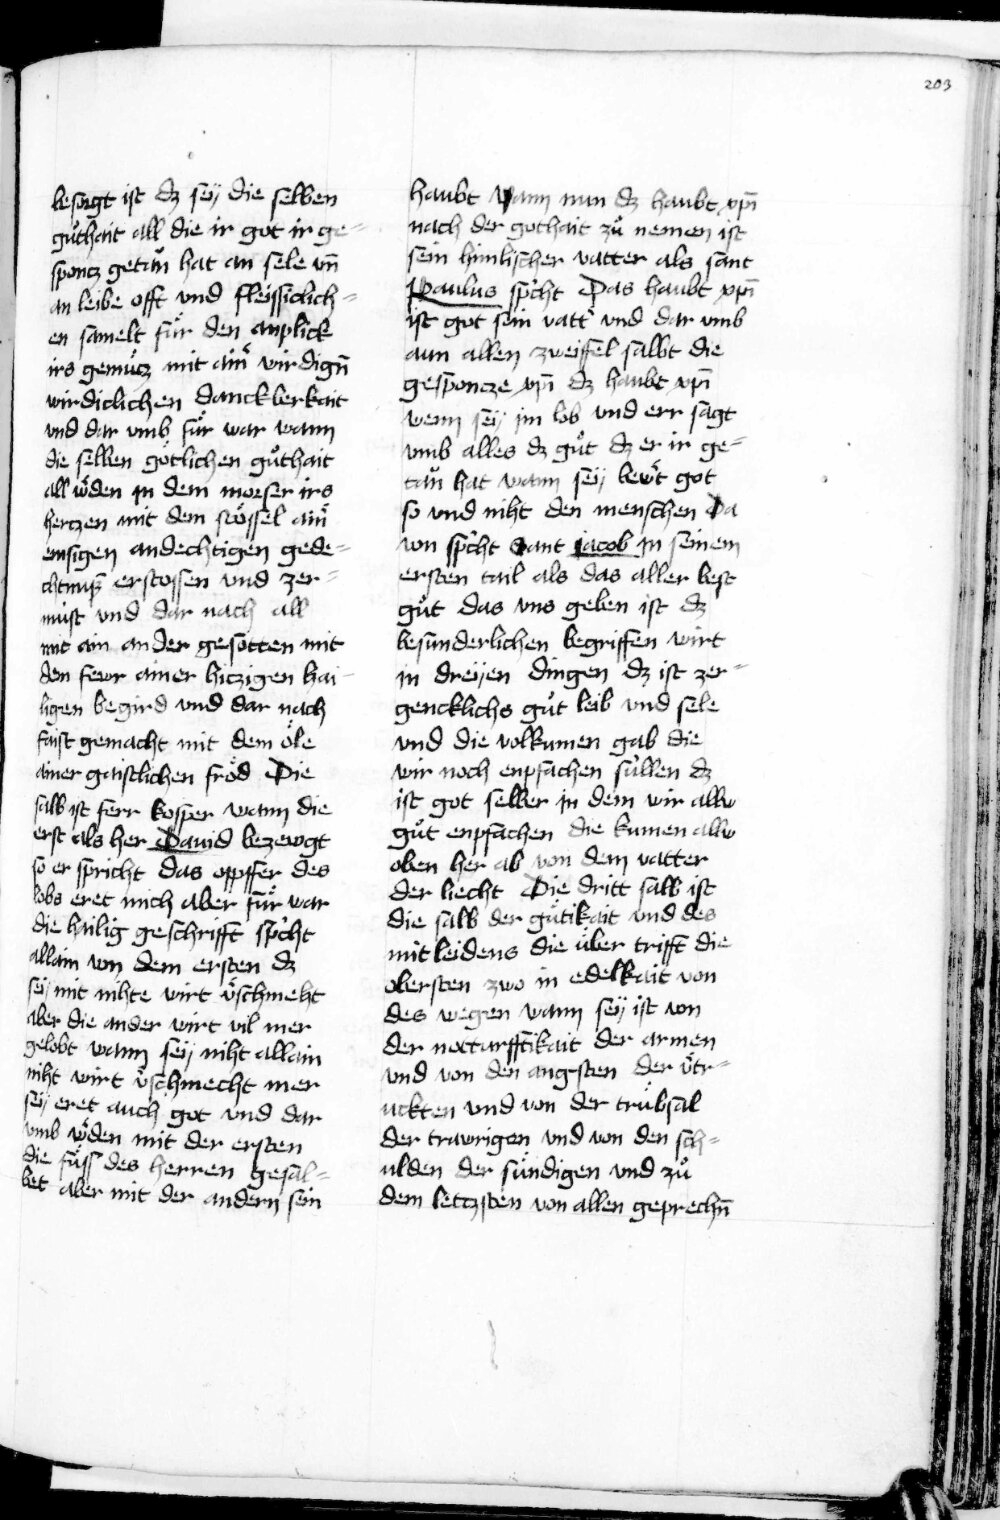 203
besorgt ist dz seÿ die selben
gůthait all die ir got ir ge=
sponcz getaũ hat an sele vñ
an leibe offt vnd fleissiclich=
en samelt für den anplick
irs gemücz mit aim̃ wirdigñ
wirdiclichen danckberkait
vnd dar vmb für war wann
die selben götlichen gůthait
all w̃den in dem morser irs
herczen mit dem stössel aim̃
emsigen andechtigen gede=
chtnuß erstossen vnd zer=
müst vnd dar nach all
mit ain ander gesotten mit
dem fewr ainer hiczigen hai=
ligen begird vnd dar nach
faist gemacht mit dem öle
ainer gaistlichen fröd Die
salb ist ferr kosper wann die
erst als her Dauid bezewgt
so er spricht das oppffer des
lobs eret mich aber für war
die hailig geschrifft sp̃cht
allain von dem ersten dz
seÿ mit nihte wirt v̈schmeht
aber die ander wirt vil mer
gelobt wann seÿ niht allain
niht wirt v̈schmecht mer
seÿ eret auch got vnd dar
vmb w̃den mit der ersten
die füss des herren gesal=
bet aber mit der andern sein
haubt Wann nun dz haubt xp̃i
nach der gothait zů nemen ist
sein himlischer vatter als sant
Paulus sp̃cht Das haubt xp̃i
ist got sein vatt̃ vnd dar vmb
aun allen zweiffel salbt die
gesponcze xp̃i dz haubt xp̃i
wenn seÿ im lob vnd err sagt
vmb alles dz gůt dz er ir ge=
taũ hat wann seÿ bew̃t got
so vnd niht den menschen Da
von sp̃cht Sant iacob in seinem
ersten tail als das aller best
gůt das vns geben ist dz
besunderlichen begriffen wirt
in dreÿen dingen dz ist zer=
gencklichs gůt leib vnd sele
vnd die volkumen gab die
wir noch enpfachen süllen dz
ist got selber in dem wir allw
gůt enpfachen die kumen allw
oben her ab von dem vatter
der liecht Die dritt salb ist
die salb der gütikait vnd des
mitleidens die über trifft die
obersten zwo in edelkait von
des wegen wann seÿ ist von
der notturfftikait der armen
vnd von den angsten der v̈tr=
uckten vnd von der trübsal
der trawrigen vnd von den sch=
ulden der sündigen vnd zů
dem lettzsten von allen geprechñ